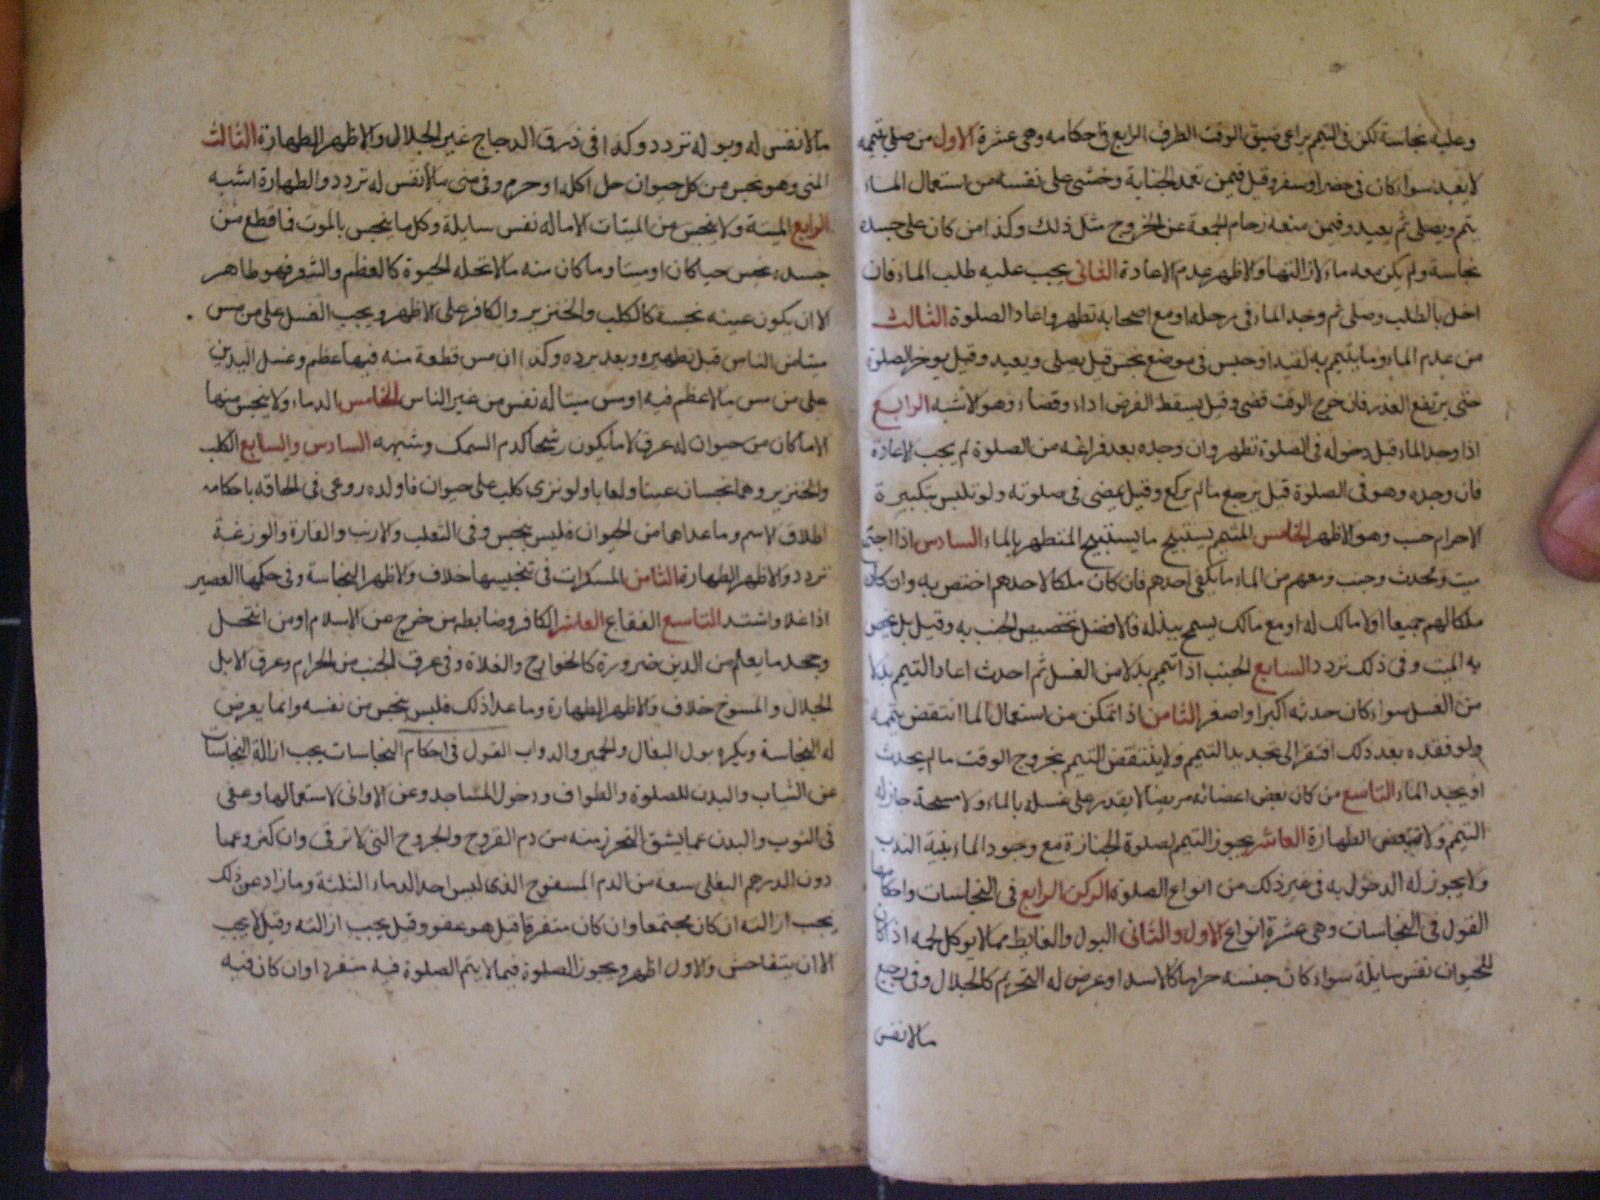 وعليه نجاسة لكن في التيمم يراعى ضيق الوقت الطرف الرابع في احكامه وهي عشرة الاول من صلى بتيممه
لا يعيد سواء كان في حضر او سفر وقيل فيمن تعمد الجنابة وخشى على نفسه من استعمال الماء
يتيمم ويصلي ثم يعيد وفيمن منعه زحام الجمعة عن الخروج مثل ذلك وكذا من كان على جسده
نجاسة ولم يكن معه ماء لازالتها والاظهر عدم الاعادة الثاني يجب عليه طلب الماء فان
اخل بالطلب وصلى ثم وجد الماء في رحله او مع اصحابه تطهر واعاد الصلوة الثالث
من عدم الماء وما يتيمم به لقيد او حبس في موضع نجس قيل يصلي ويعيد وقيل يوخر الصلوة
حتى يرتفع العذر فان خرج الوقت قضى وقيل يسقط الفرض اداء وقضاء وهو الاشبه الرابع
اذا وجد الماء قبل دخوله في الصلوة تطهر وان وجده بعد فراغه من الصلوة لم يجب الاعادة
فان وجده وهو في الصلوة قيل يرجع ما لم يركع وقيل يمضي في صلوته ولو تلبس بتكبيرة
الاحرام حسب وهو الاظهر الخامس المتيمم يستبيح ما يستبيح المتطهر بالماء السادس اذا اجتمع
ميت ومحدث وجنب ومعهم من الماء ما يكفي احدهم فان كان ملكا لاحدهم اختص به وان كان
ملكا لهم جميعا او لا مالك له او مع مالك يسمح ببذله فالافضل تخصيص الجنب به وقيل بل يخص
به الميت وفي ذلك تردد السابع الجنب اذا تيمم بدلا من الغسل ثم احدث اعاد التيمم بدلا
من الغسل سواء كان حدثه اكبر او اصغر الثامن اذا تمكن من استعمال الماء انتقض تيممه
ولو فقده بعد ذلك افتقر الى تجديد التيمم ولا ينتقض التيمم بخروج الوقت ما لم يحدث
او يجد الماء التاسع من كان بعض اعضائه مريضا لا يقدر على غسله بالماء ولا مسحه جاز له
التيمم ولا تتبعض الطهارة العاشر يجوز التيمم لصلوة الجنازة مع وجود الماء بنية الندب
ولا يجوز له الدخول به في غير ذلك من انواع الصلوة الركن الرابع في النجاسات واحكامها
القول في النجاسات وهي عشرة انواع الاول والثاني البول والغايط مما لا يوكل لحمه اذا كان
للحيوان نفس سايلة سواء كان جنسه حراما كالاسد او عرض له التحريم كالجلال وفي رجيع
ما لا نفس
ما لا نفس له وبوله تردد وكذا في ذرق الدجاج غير الجلال والاظهر الطهارة الثالث
المنى وهو نجس من كل حيوان حل اكله او حرم وفي منى ما لا نفس له تردد والطهارة اشبه
الرابع الميتة ولا ينجس من الميتات الا ما له نفس سايلة وكل ما ينجس بالموت فما قطع من
جسده نجس حيا كان او ميتا وما كان منه مما لا تحله الحيوة كالعظم والشعر فهو طاهر
الا ان يكون عينه نجسة كالكلب والخنزير والكافر على الاظهر ويجب الغسل على من مس
ميتا من الناس قبل تطهيره وبعد برده وكذا ان مس قطعة منه فيها عظم وغسل اليد
على من مس ما لا عظم فيه او مس ميتا له نفس من غير الناس الخامس الدماء ولا ينجس منها
الا ما كان من حيوان له عرق لا ما يكون رشحا كدم السمك وشبهه السادس والسابع الكلب
والخنزير وهما نجسان عينا ولعابا ولو نزى كلب على حيوان فاولده روعى في الحاقه باحكامه
اطلاق الاسم وما عداهما من الحيوان فليس بنجس وفي الثعلب والارنب والفارة والوزغة
تردد والاظهر الطهارة الثامن المسكرات في تنجيسها خلاف والاظهر النجاسة وفي حكمها العصير
اذا غلا واشتد التاسع الفقاع العاشر الكافر وضابطه من خرج عن الاسلام او من انتحله
وجحد ما يعلم من الدين ضرورة كالخوارج والغلاة وفي عرق الجنب من الحرام وعرق الابل
الجلال والمسوخ خلاف والاظهر الطهارة وما عدا ذلك فليس بنجس من نفسه وانما يعرض
له النجاسة ويكره بول البغال والحمير والدواب القول في احكام النجاسات يجب ازالة النجاسات
عن الثياب والبدن للصلوة والطواف ودخول المساجد وعن الاواني لاستعمالها وعفي
في الثوب والبدن عما يشق التحرز منه من دم القروح والجروح التي لا ترقى وان كثر وعما
دون الدرهم البغلي سعة من الدم المسفوح الذي ليس احد الدماء الثلثة وما زاد عن ذلك
يجب ازالته ان كان مجتمعا وان كان متفرقا قيل هو عفو وقيل يجب ازالته وقيل لا يجب
الا ان يتفاحش والاول اظهر ويجوز الصلوة فيما لا يتم الصلوة فيه منفردا وان كان فيه